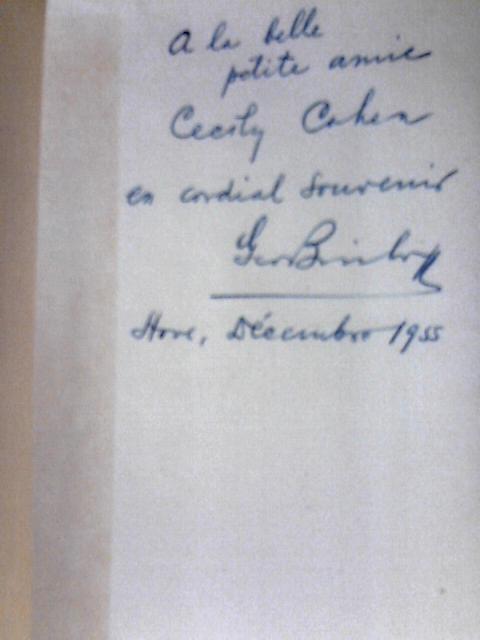 A la belle
petite amie
Cecily Cohen
en cordial souvenir
Hove, Décembre 1955